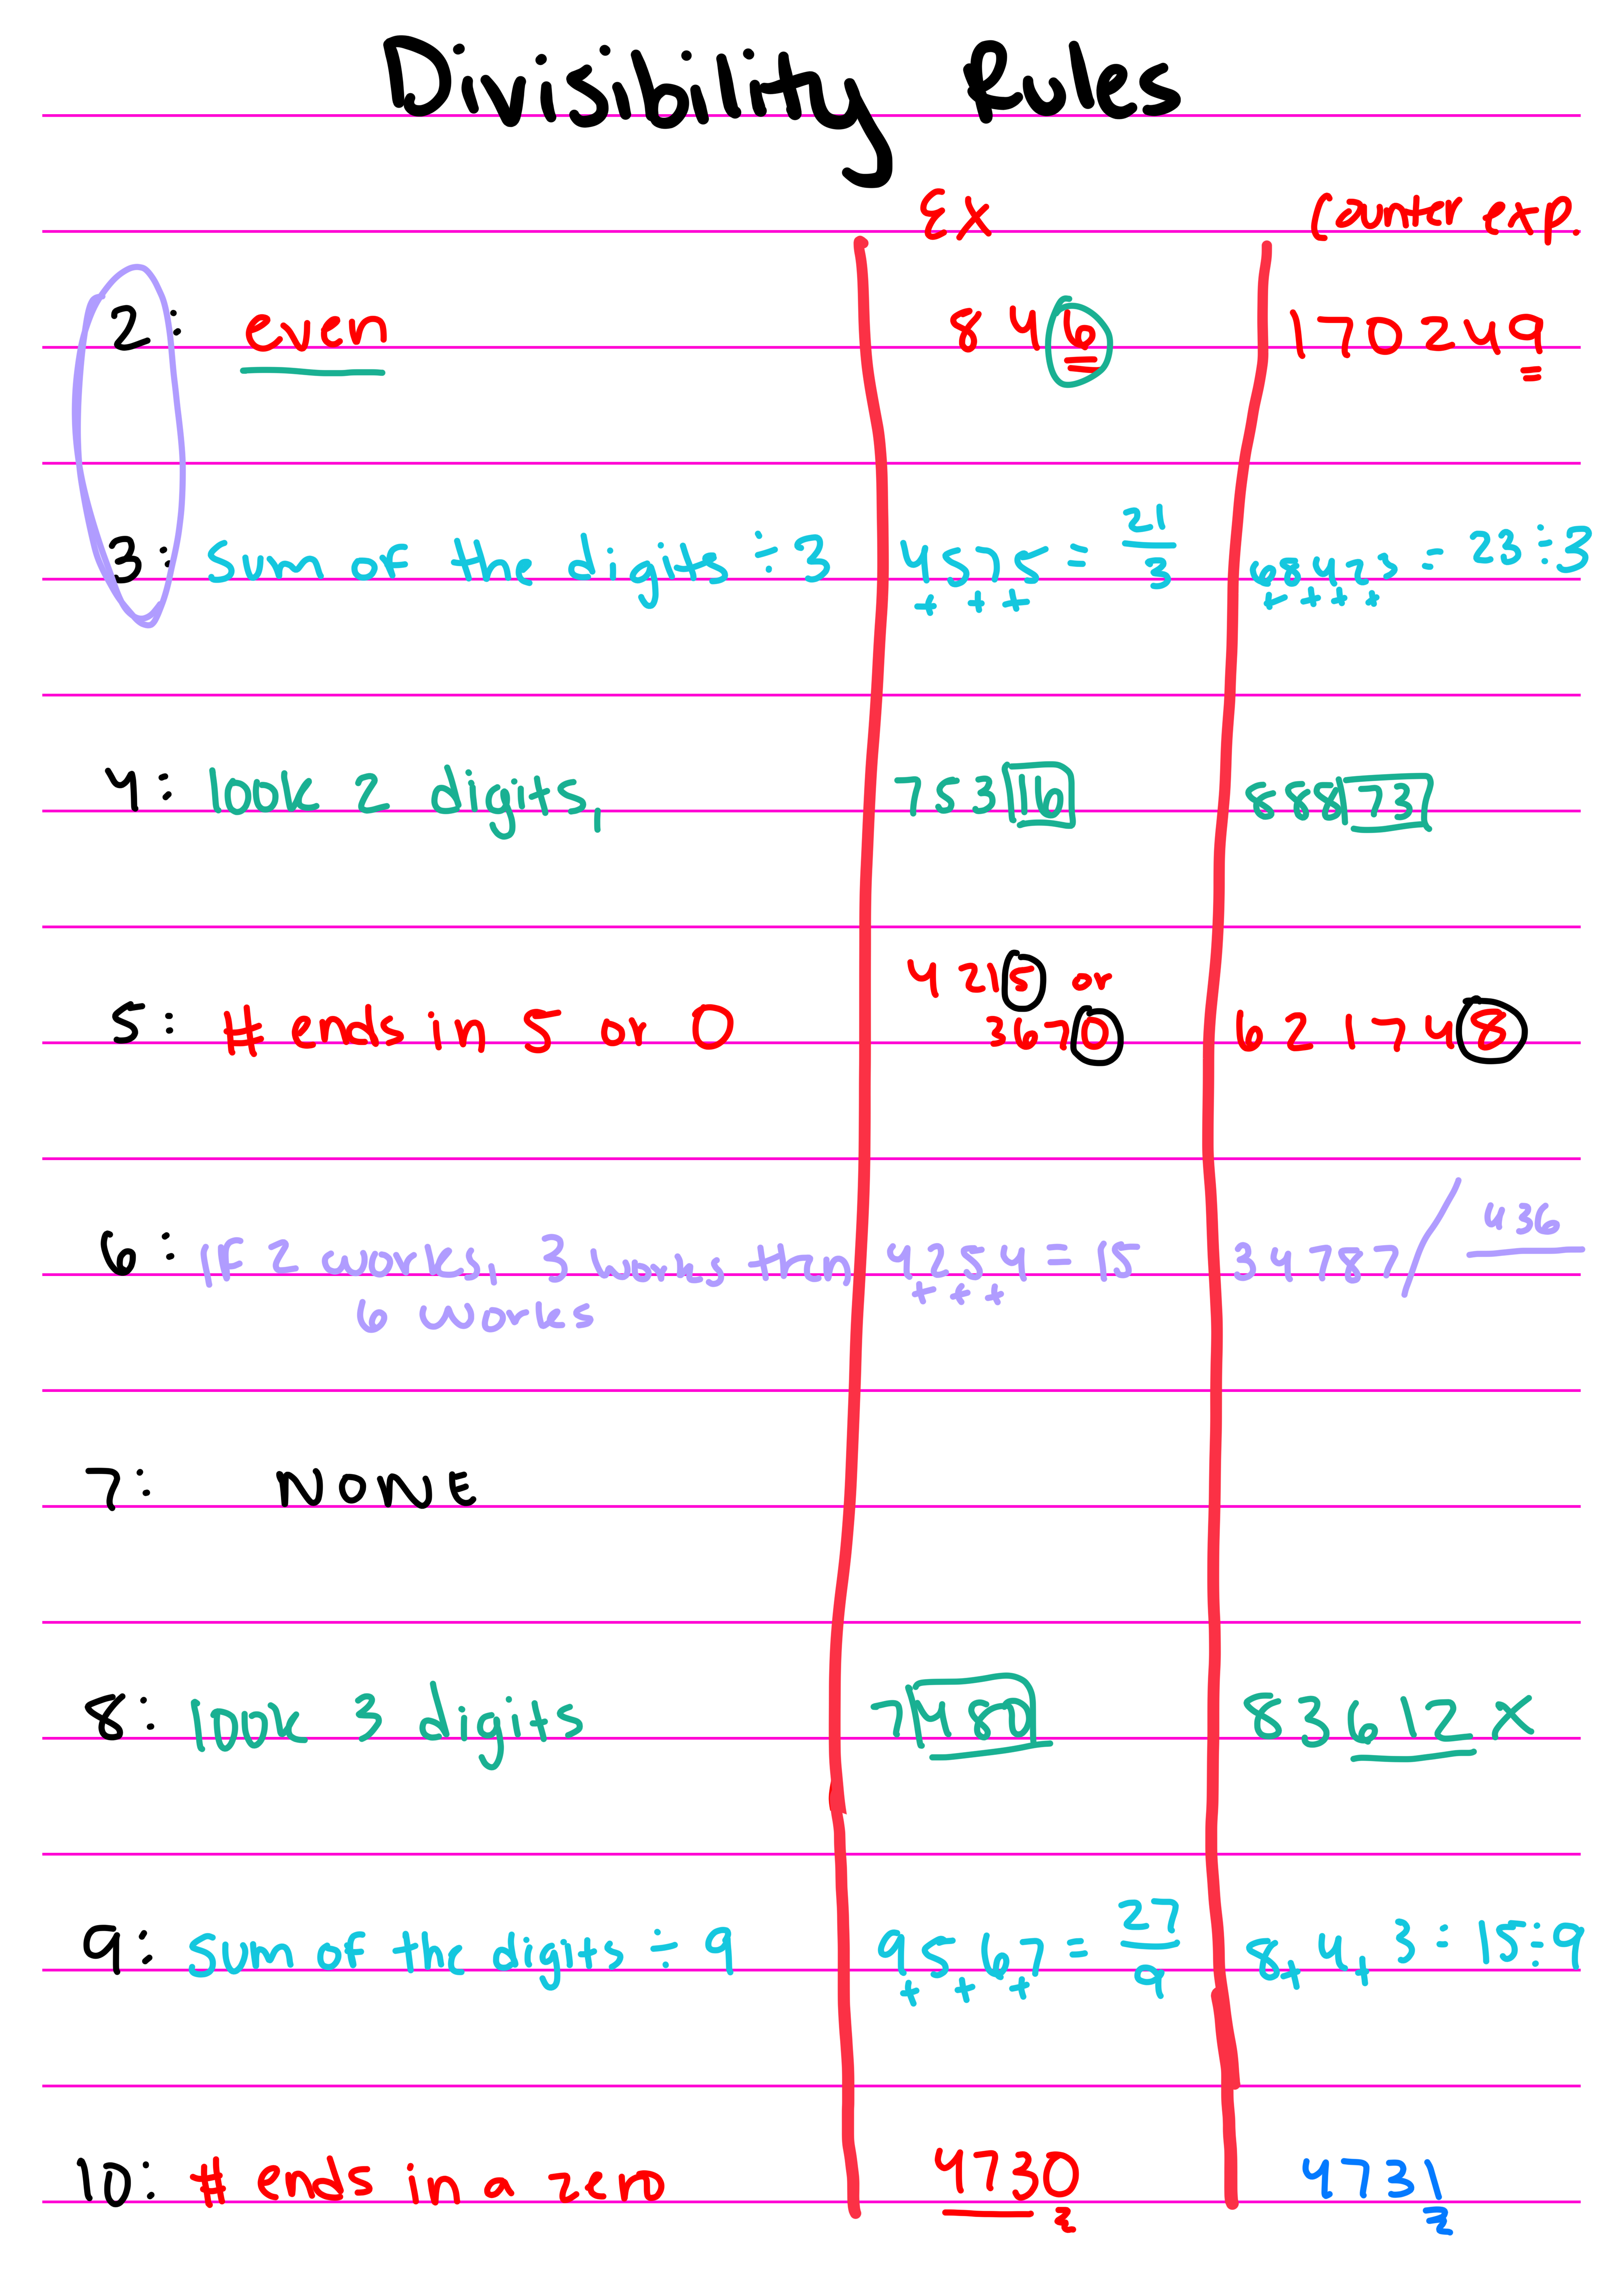 Divisibility Rules
Ex Counter exp.
2: even 846 170249
3: Sum of the digits ÷ 3 4575 = 21/3 68423 = 23÷3
+ + + + + + +
4: look 2 digits, 75316 88873
5: # ends in 5 or 0 4215 or 3670 621748
6: If 2 works, 3 works then 4254 = 15 34787 / 436
6 works + + +
7: NONE
8: look 3 digits 7480 83612 X
9: Sum of the digits ÷ 9 9567 = 27/9 8+4+3 = 15÷9
+ + +
10: # ends in a zero 4730 4731